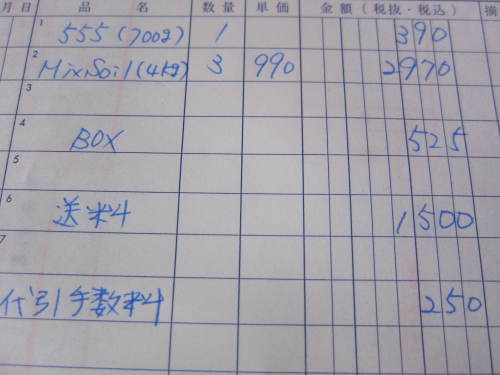 月 日 品 名 数 量 単 価 金 額 (税抜・税込) 摘
1 555 (700g) 1 390
2 MixSoil (4kg) 3 990 2970
3
4 BOX 525
5
6 送料 1500
7
代引手数料 250